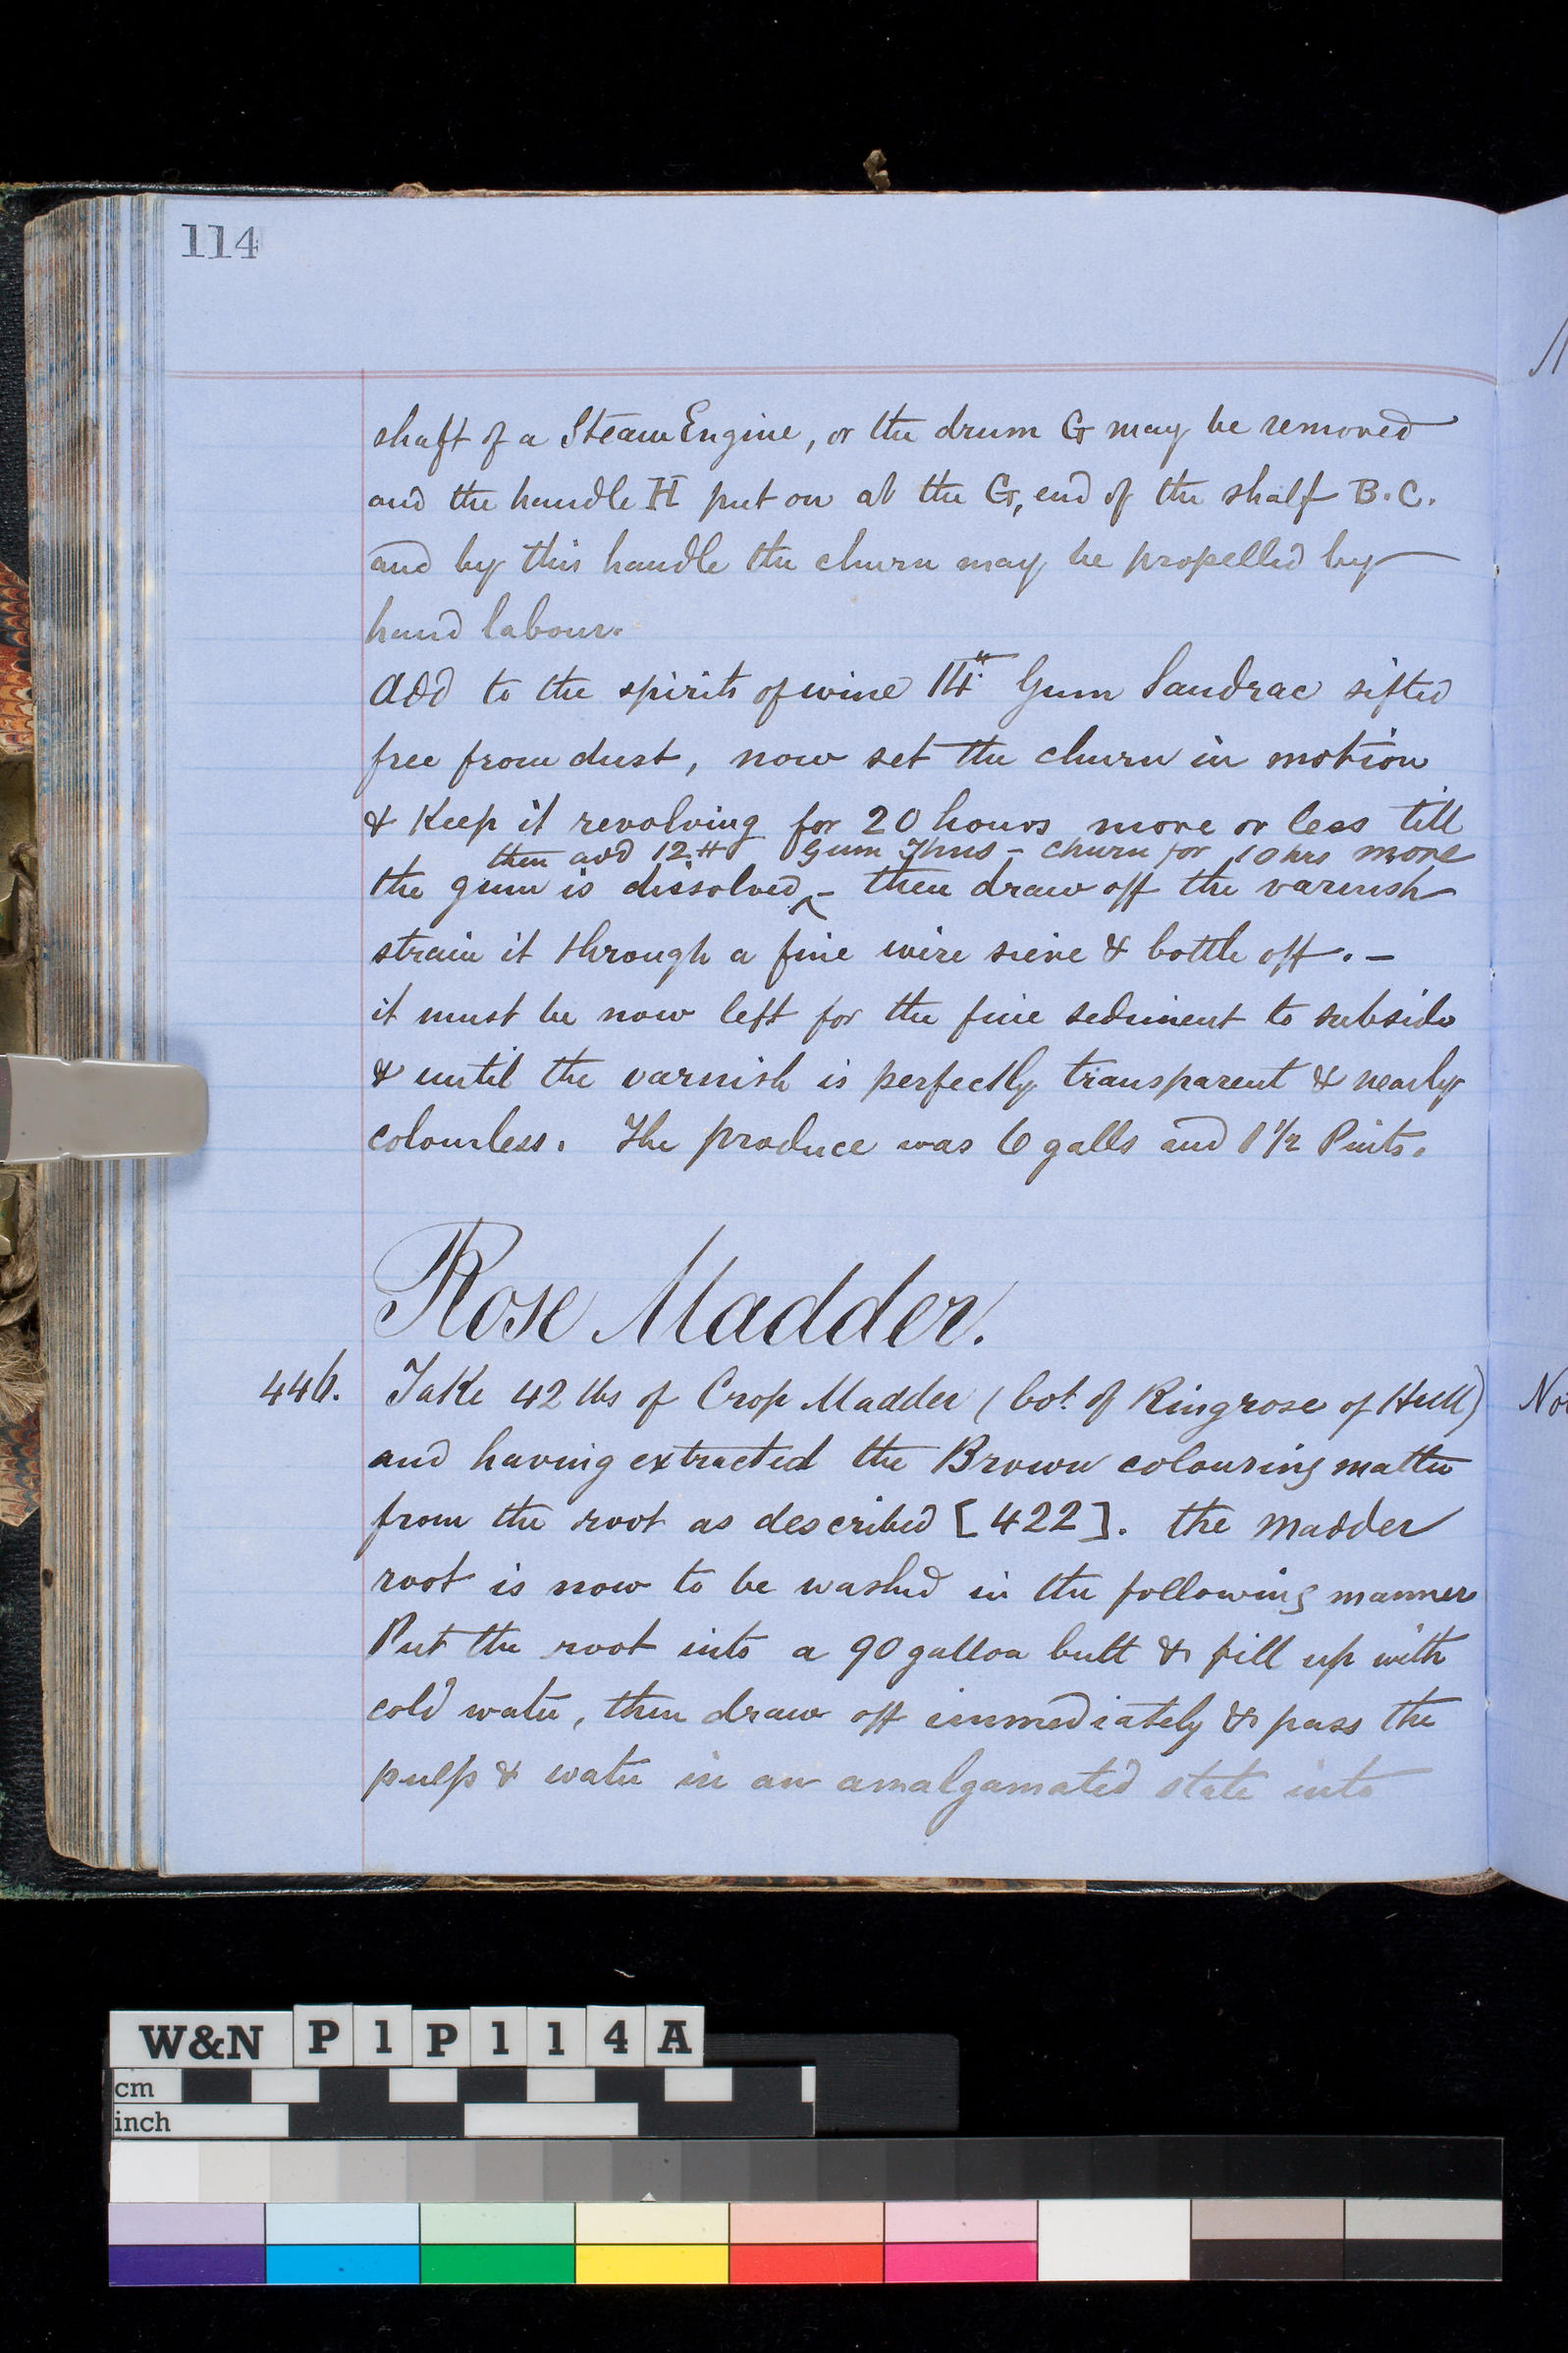 114
shaft of a Steam Engine, or the drum G may be removed
and the handle H put on at the G, end of the shaft B. C.
and by this handle the churn may be propelled by
hand labour.
Add to the spirits of wine Gum Sandrac sifted
free from dust, now set the churn in motion
& Keep it revolving for 20 hours more or less till
then add 12 # Gum Thus - churn for 10 hrs more
the gum is dissolved, - then draw off the varnish
strain it through a fine wire sieve & bottle off. -
it must be now left for the fine sediment to subside
& until the varnish is perfectly transparent & nearly
colourless. The produce was 6 galls and 1 1/2 Pints.
Rose Madder.
446. Take 42 lbs of Crop Madder (bot. of Ringrose of Hull)
and having extracted the Brown colouring matter
from the root as described [422]. the madder
root is now to be washed in the following manner
Put the root into a 90 gallon butt & fill up with
cold water, then draw off immediately & pass the
pulp & water in an amalgamated state into
No
W&N P1P114A
cm
inch